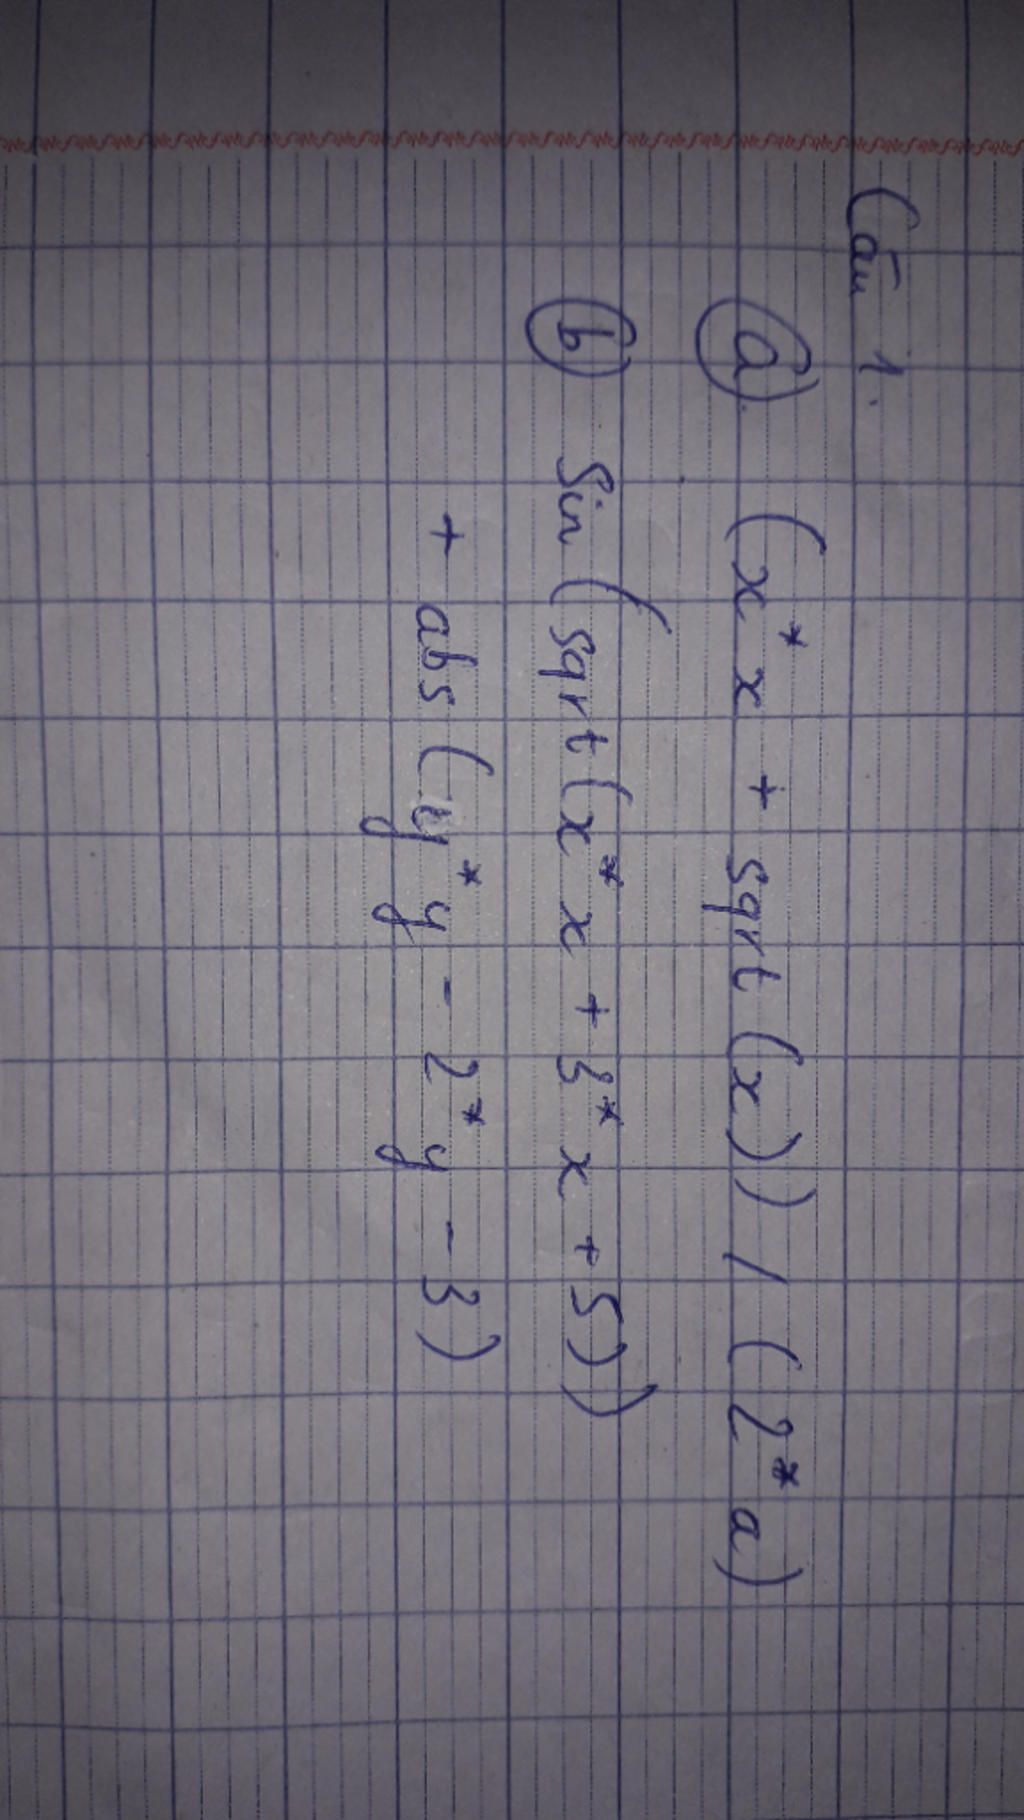 Câu 1.
a) (x*x + sqrt(x)) / (2*a)
b) Sin(sqrt(x*x + 3*x + 5))
+ abs(y*y - 2*y - 3)